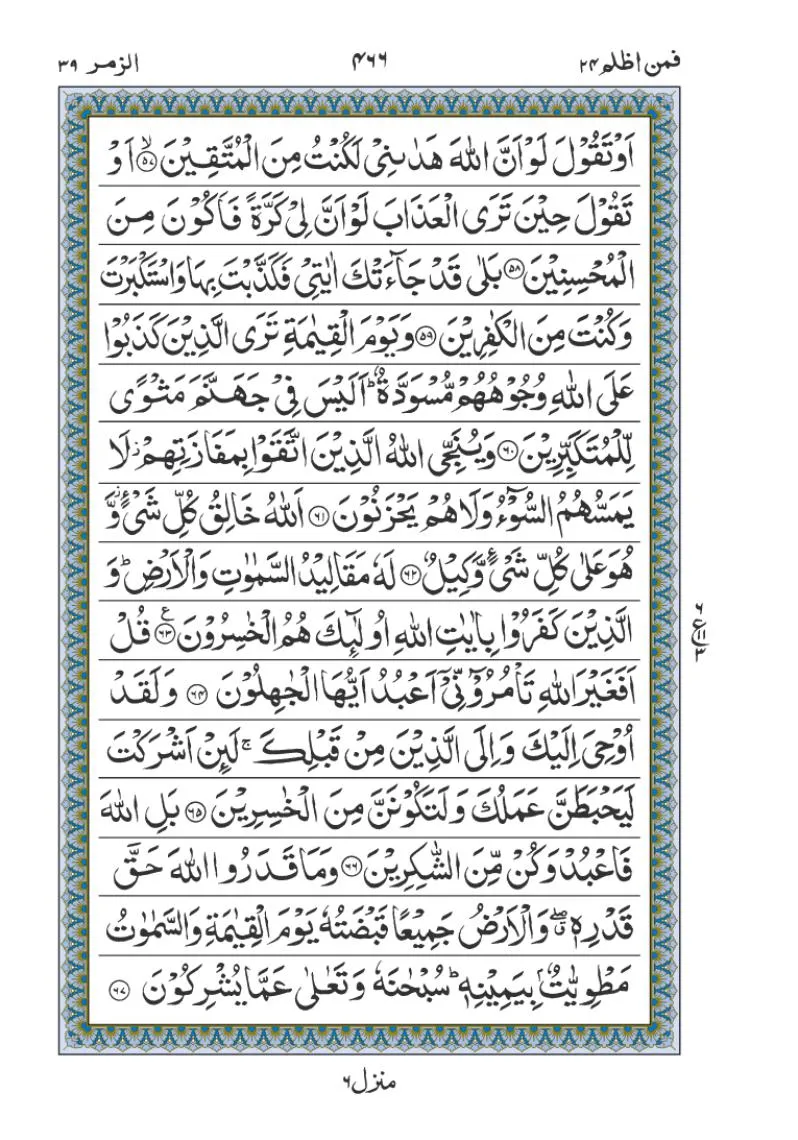 فمن اظلم ۲۴ ۴۶۶ الزمر ۳۹
اَوْ تَقُوْلَ لَوْ اَنَّ اللّٰهَ هَدٰىنِیْ لَكُنْتُ مِنَ الْمُتَّقِیْنَ ۙ﴿۵۷﴾ اَوْ
تَقُوْلَ حِیْنَ تَرَی الْعَذَابَ لَوْ اَنَّ لِیْ كَرَّةً فَاَكُوْنَ مِنَ
الْمُحْسِنِیْنَ ﴿۵۸﴾ بَلٰی قَدْ جَآءَتْكَ اٰیٰتِیْ فَكَذَّبْتَ بِهَا وَاسْتَكْبَرْتَ
وَكُنْتَ مِنَ الْكٰفِرِیْنَ ﴿۵۹﴾ وَیَوْمَ الْقِیٰمَةِ تَرَی الَّذِیْنَ كَذَبُوْا
عَلَی اللّٰهِ وُجُوْهُهُمْ مُّسْوَدَّةٌ ؕ اَلَیْسَ فِیْ جَهَنَّمَ مَثْوًی
لِّلْمُتَكَبِّرِیْنَ ﴿۶۰﴾ وَیُنَجِّی اللّٰهُ الَّذِیْنَ اتَّقَوْا بِمَفَازَتِهِمْ ؗ لَا
یَمَسُّهُمُ السُّوْٓءُ وَلَا هُمْ یَحْزَنُوْنَ ﴿۶۱﴾ اَللّٰهُ خَالِقُ كُلِّ شَیْءٍ ؗ وَّ
هُوَ عَلٰی كُلِّ شَیْءٍ وَّكِیْلٌ ﴿۶۲﴾ لَهٗ مَقَالِیْدُ السَّمٰوٰتِ وَالْاَرْضِ ؕ وَ
الَّذِیْنَ كَفَرُوْا بِاٰیٰتِ اللّٰهِ اُولٰٓىِٕكَ هُمُ الْخٰسِرُوْنَ ﴿۶۳﴾ ع قُلْ
اَفَغَیْرَ اللّٰهِ تَاْمُرُوْٓنِّیْۤ اَعْبُدُ اَیُّهَا الْجٰهِلُوْنَ ﴿۶۴﴾ وَلَقَدْ
اُوْحِیَ اِلَیْكَ وَاِلَی الَّذِیْنَ مِنْ قَبْلِكَ ۚ لَىِٕنْ اَشْرَكْتَ
لَیَحْبَطَنَّ عَمَلُكَ وَلَتَكُوْنَنَّ مِنَ الْخٰسِرِیْنَ ﴿۶۵﴾ بَلِ اللّٰهَ
فَاعْبُدْ وَكُنْ مِّنَ الشّٰكِرِیْنَ ﴿۶۶﴾ وَمَا قَدَرُوا اللّٰهَ حَقَّ
قَدْرِهٖ ۖۗ وَالْاَرْضُ جَمِیْعًا قَبْضَتُهٗ یَوْمَ الْقِیٰمَةِ وَالسَّمٰوٰتُ
مَطْوِیّٰتٌۢ بِیَمِیْنِهٖ ؕ سُبْحٰنَهٗ وَتَعٰلٰی عَمَّا یُشْرِكُوْنَ ﴿۶۷﴾
۶
ع ۱۱
۳
منزل ۶